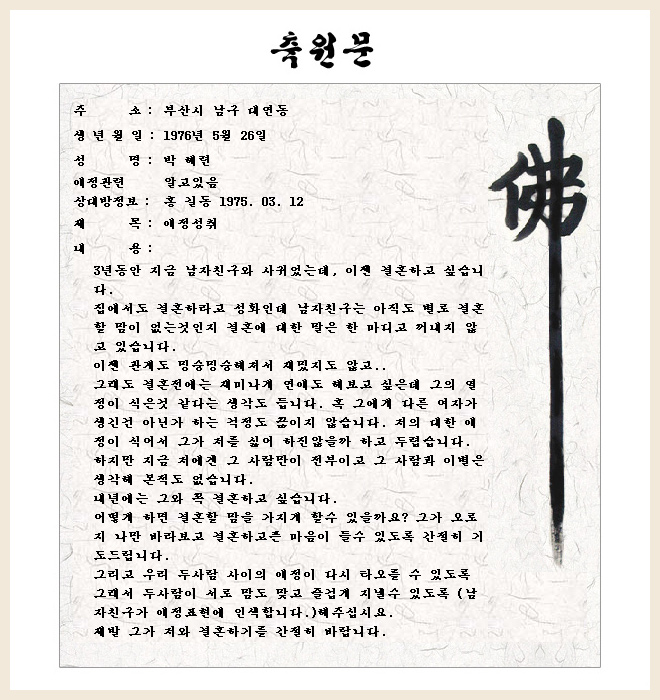 축원문
주 소 : 부산시 남구 대연동
생 년 월 일 : 1976년 5월 26일
성 명 : 박 혜련
애정관련 알고있음
상대방정보 : 홍 길동 1975. 03. 12
제 목 : 애정성취
내 용 :
佛
3년동안 지금 남자친구와 사귀었는데, 이젠 결혼하고 싶습니
다.
집에서도 결혼하라고 성화인데 남자친구는 아직도 별로 결혼
할 맘이 없는것인지 결혼에 대한 말은 한 마디고 꺼내지 않
고 있습니다.
이젠 관계도 밍숭밍숭해져서 재밌지도 않고..
그래도 결혼전에는 재미나게 연애도 해보고 싶은데 그의 열
정이 식은것 같다는 생각도 듭니다. 혹 그에게 다른 여자가
생긴건 아닌가 하는 걱정도 끊이지 않습니다. 저의 대한 애
정이 식어서 그가 저를 싫어 하진않을까 하고 두렵습니다.
하지만 지금 저에겐 그 사람만이 전부이고 그 사람과 이별은
생각해 본적도 없습니다.
내년에는 그와 꼭 결혼하고 싶습니다.
어떻게 하면 결혼할 맘을 가지게 할수 있을까요? 그가 오로
지 나만 바라보고 결혼하고픈 마음이 들수 있도록 간절히 기
도드립니다.
그리고 우리 두사람 사이의 애정이 다시 타오를 수 있도록
그래서 두사람이 서로 맘도 맞고 즐겁게 지낼수 있도록 (남
자친구가 애정표현에 인색합니다.)해주십시요.
제발 그가 저와 결혼하기를 간절히 바랍니다.